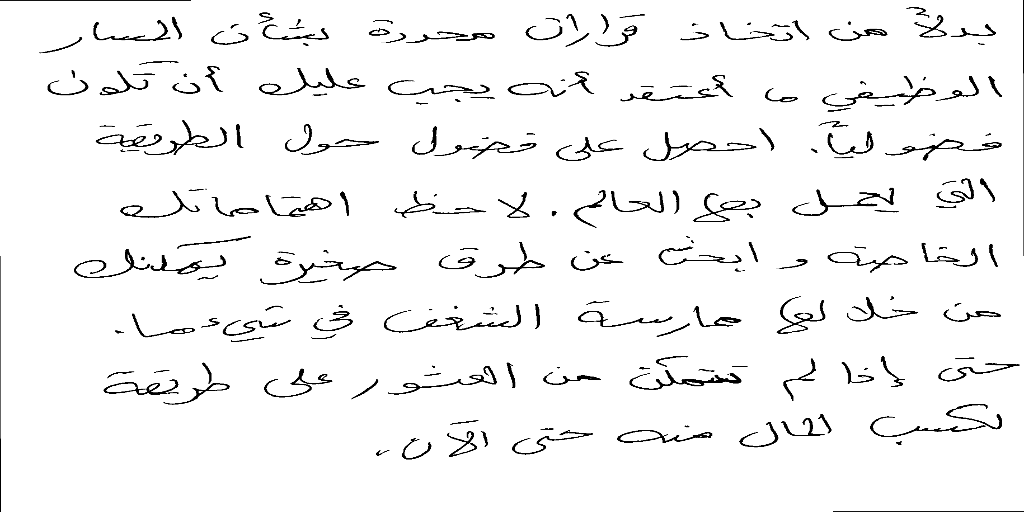 بدلاً من اتخاذ قرارات محددة بشأن المسار
الوظيفي ما أعتقد أنه يجب عليك أن تكون
فضولياً. احصل على فضول حول الطريقة
التي يعمل بها العالم. لاحظ اهتماماتك
الخاصة و ابحث عن طرق صغيرة يمكنك
من خلالها ممارسة الشغف في شيء ما.
حتى إذا لم تتمكن من العثور على طريقة
لكسب المال منه حتى الآن.